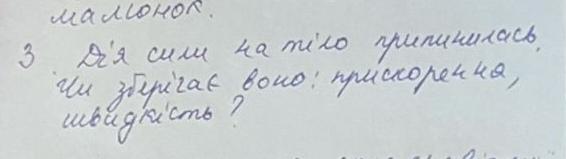 малюнок.
3 Дія сили на тіло припинилась.
Чи зберігає воно: прискорення,
швидкість?